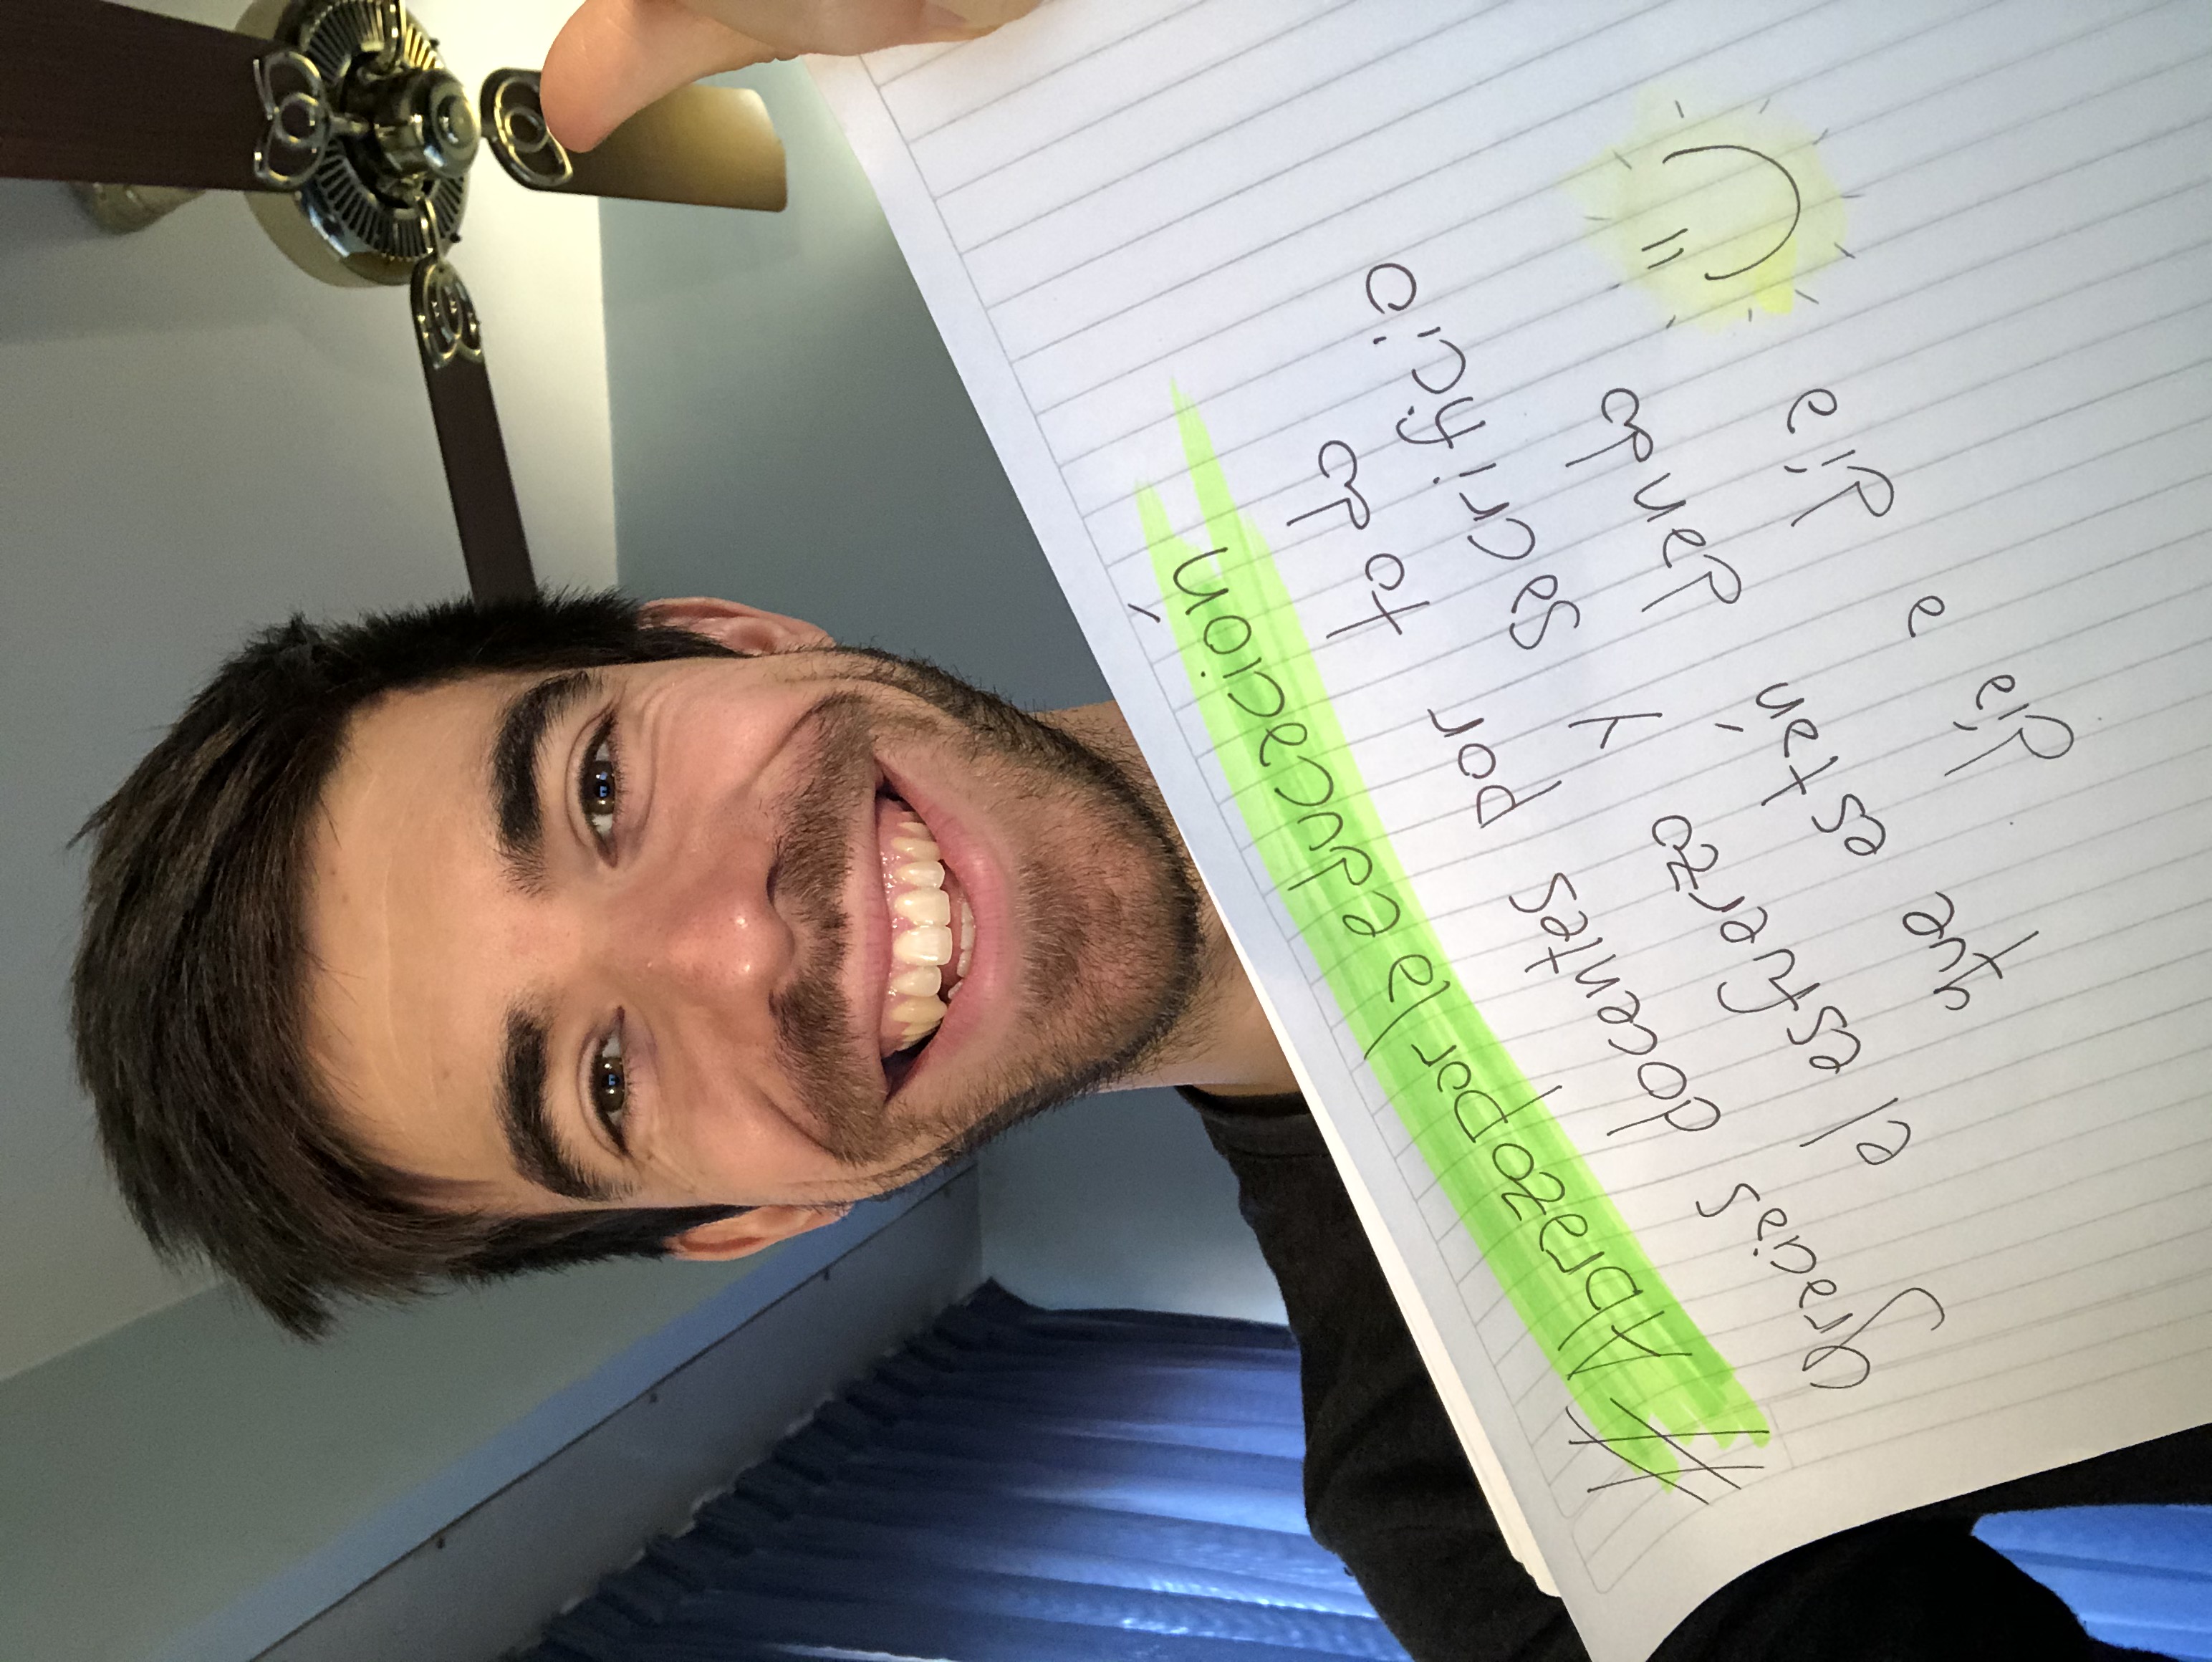 #Abrazoporlaeducación
gracias docentes por todo
el esfuerzo y sacrificio
que están dando
día a día